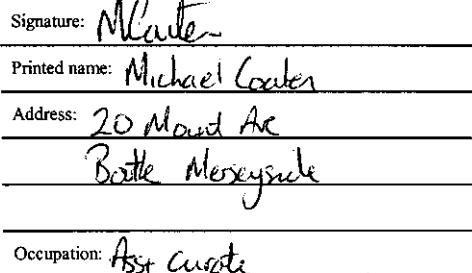 Signature: MCoater
Printed name: Michael Coater
Address: 20 Mount Ave
Bootle Merseyside
Occupation: Asst Curate